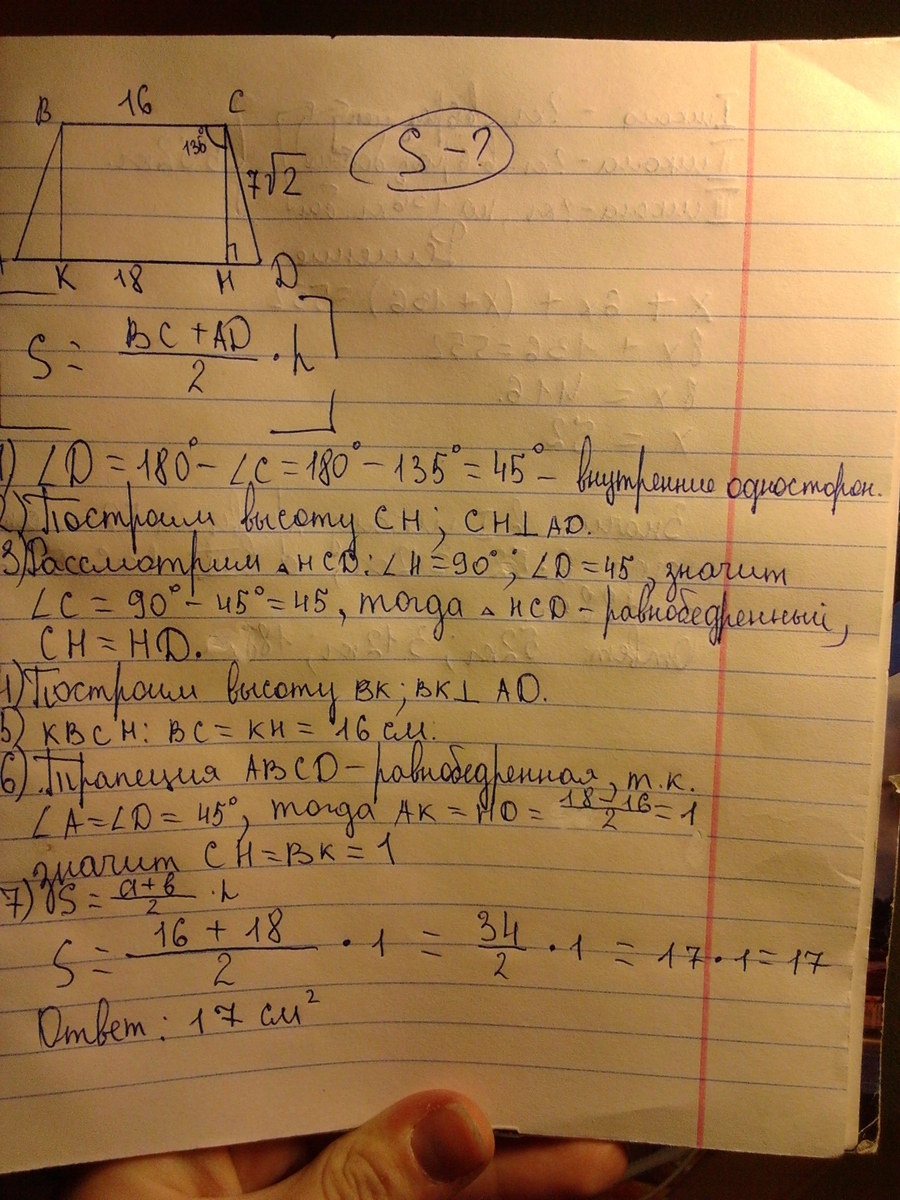 B 16 C
135°
7√2
S - ?
K 18 H D
S = (BC + AD)/2 · h
1) ∠D = 180° - ∠C = 180° - 135° = 45° - внутренние односторон.
2) Построим высоту CH; CH⊥AD.
3) Рассмотрим ▵HCD: ∠H = 90°; ∠D = 45, значит
∠C = 90° - 45° = 45, тогда ▵HCD - равнобедренный,
CH = HD.
4) Построим высоту BK; BK⊥AD.
5) KBCH: BC = KH = 16 см.
6) Трапеция ABCD - равнобедренная, т.к.
∠A = ∠D = 45°, тогда AK = HD = (18 - 16)/2 = 1
значит CH = BK = 1
7) S = (a + b)/2 · h
S = (16 + 18)/2 · 1 = 34/2 · 1 = 17 · 1 = 17
Ответ: 17 см²